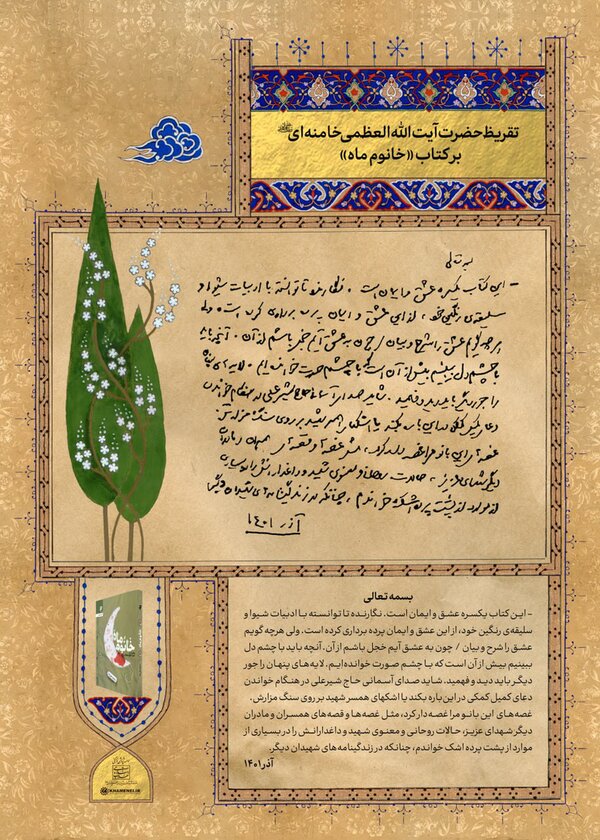 تقریظ حضرت آیت الله العظمی خامنه‌ای
بر کتاب «خانوم ماه»
بسمه تعالی
- این کتاب یکسره عشق و ایمان است. نگارنده تا توانسته با ادبیات شیوا و
سلیقه‌ی رنگین خود، از این عشق و ایمان پرده برداری کرده است. ولی
هرچه گویم عشق را شرح و بیان / چون به عشق آیم خجل باشم از آن. آنچه باید
با چشم دل ببینیم بیش از آن است که با چشم صورت خوانده‌ایم. لایه‌های پنهان
را جور دیگر باید دید و فهمید. شاید صدای آسمانی حاج شیرعلی در هنگام خواندن
دعای کمیل کمکی در این باره بکند یا اشکهای همسر شهید بر روی سنگ مزارش.
غصه‌های این بانو مرا غصه‌دار کرد، مثل غصه‌ها و قصه‌های همسران و مادران
دیگر شهدای عزیز، حالات روحانی و معنوی شهید و داغدارانش را در بسیاری
از موارد از پشت پرده اشک خواندم، چنانکه در زندگینامه‌های شهیدان دیگر.
آذر ۱۴۰۱
بسمه تعالی
- این کتاب یکسره عشق و ایمان است. نگارنده تا توانسته با ادبیات شیوا و
سلیقه‌ی رنگین خود، از این عشق و ایمان پرده برداری کرده است. ولی هرچه گویم
عشق را شرح و بیان / چون به عشق آیم خجل باشم از آن. آنچه باید با چشم دل
ببینیم بیش از آن است که با چشم صورت خوانده‌ایم. لایه‌های پنهان را جور
دیگر باید دید و فهمید. شاید صدای آسمانی حاج شیرعلی در هنگام خواندن
دعای کمیل کمکی در این باره بکند یا اشکهای همسر شهید بر روی سنگ مزارش.
غصه‌های این بانو مرا غصه دار کرد، مثل غصه‌ها و قصه‌های همسران و مادران
دیگر شهدای عزیز، حالات روحانی و معنوی شهید و داغدارانش را در بسیاری از
موارد از پشت پرده اشک خواندم، چنانکه در زندگینامه های شهیدان دیگر.
آذر ۱۴۰۱
خانوم ماه
KHAMENEI.IR